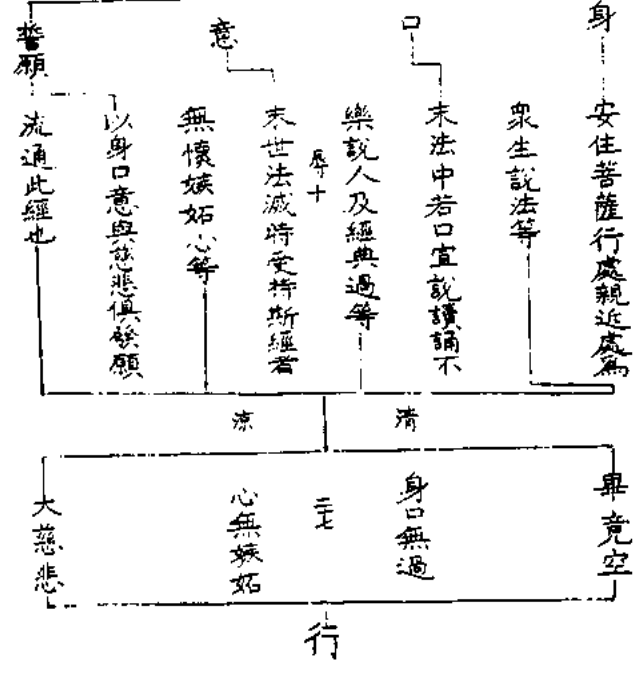 身
安住菩薩行處親近處為
衆生說法等
口
末法中若口宣說讀誦不
樂說人及經典過等
辱十
意
末世法滅時受持斯經者
無懷嫉妬心等
誓願
以身口意與慈悲俱發願
流通此經也
清涼
畢竟空
身口無過
二七
心無嫉妬
大慈悲
行